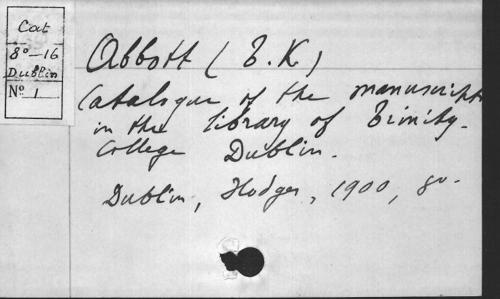 Cat
8º-16
Dublin
Nº 1
Abbott (T.K)
Catalogue of the manuscripts
in the library of Trinity-
College Dublin.
Dublin, Hodges, 1900, 8º.